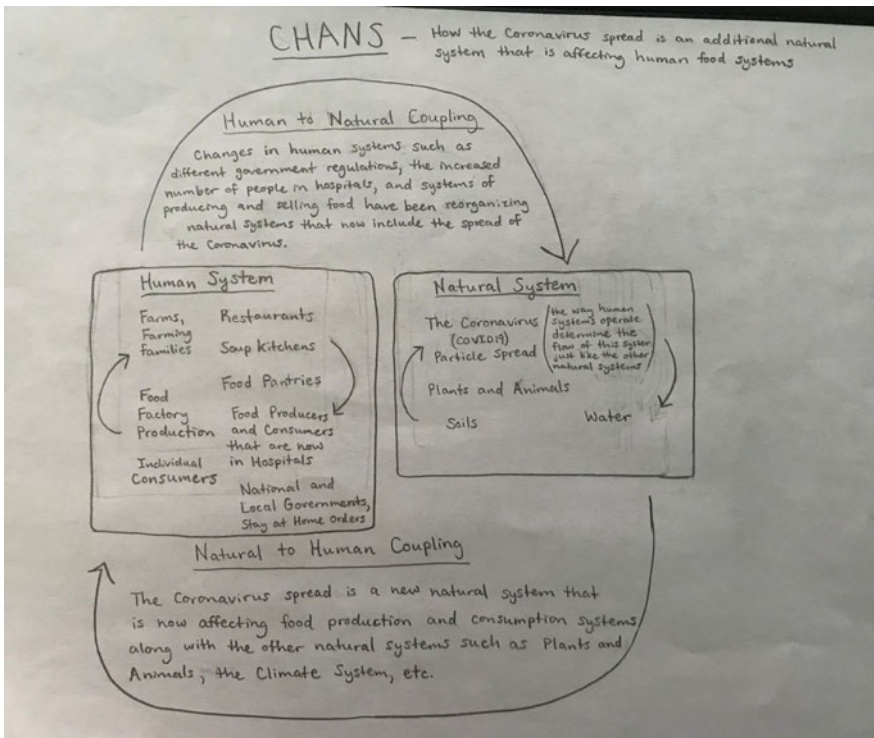 CHANS – How the Coronavirus spread is an additional natural
system that is affecting human food systems
Human to Natural Coupling
Changes in human systems such as
different government regulations, the increased
number of people in hospitals, and systems of
producing and selling food have been reorganizing
natural systems that now include the spread of
the Coronavirus.
Human System
Farms,
Farming
families
Food
Factory
Production
Individual
Consumers
Restaurants
Soup Kitchens
Food Pantries
Food Producers
and Consumers
that are now
in Hospitals
National and
Local Governments,
Stay at Home Orders
Natural System
The Coronavirus
(COVID19)
Particle Spread
(the way human
systems operate
determine the
flow of this system
just like the other
natural systems)
Plants and Animals
Soils
Water
Natural to Human Coupling
The Coronavirus spread is a new natural system that
is now affecting food production and consumption systems
along with the other natural systems such as Plants and
Animals, the Climate System, etc.